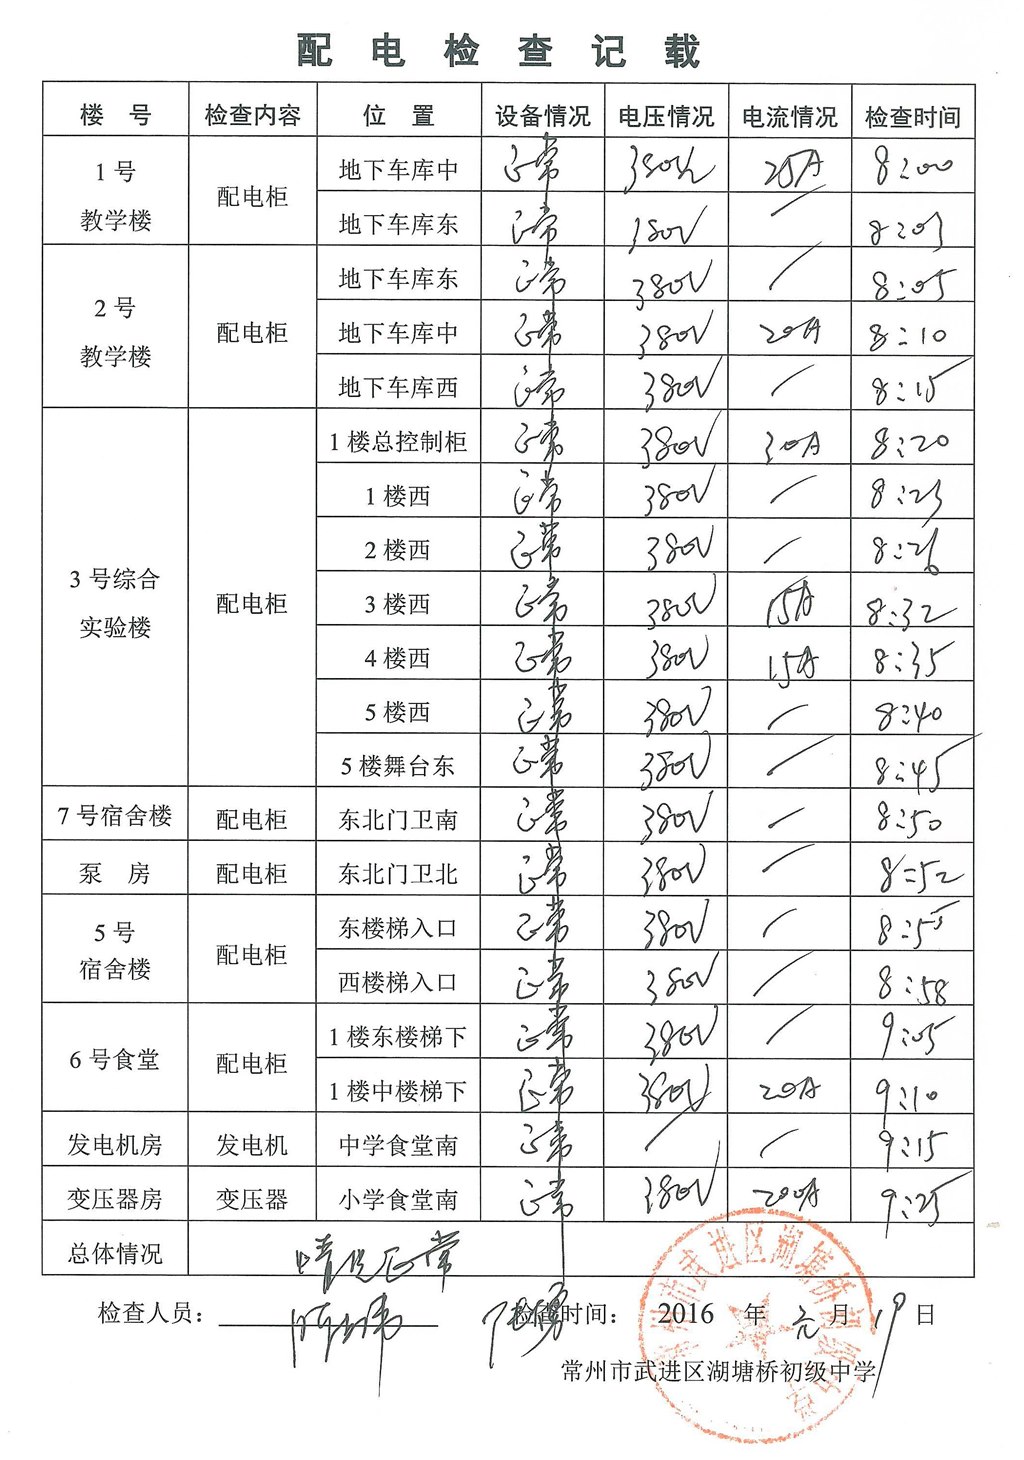 配 电 检 查 记 载
楼 号 检查内容 位 置 设备情况 电压情况 电流情况 检查时间
1号 教学楼 配电柜 地下车库中 正常 380V 25A 8:00
地下车库东 正常 380V / 8:03
2号 教学楼 配电柜 地下车库东 正常 380V / 8:05
地下车库中 正常 380V 20A 8:10
地下车库西 正常 380V / 8:15
3号综合 实验楼 配电柜 1楼总控制柜 正常 380V 30A 8:20
1楼西 正常 380V / 8:23
2楼西 正常 380V / 8:26
3楼西 正常 380V 15A 8:32
4楼西 正常 380V 15A 8:35
5楼西 正常 380V / 8:40
5楼舞台东 正常 380V / 8:45
7号宿舍楼 配电柜 东北门卫南 正常 380V / 8:50
泵 房 配电柜 东北门卫北 正常 380V / 8:52
5号 宿舍楼 配电柜 东楼梯入口 正常 380V / 8:55
西楼梯入口 正常 380V / 8:58
6号食堂 配电柜 1楼东楼梯下 正常 380V / 9:05
1楼中楼梯下 正常 380V 20A 9:10
发电机房 发电机 中学食堂南 正常 / / 9:15
变压器房 变压器 小学食堂南 正常 380V 200A 9:25
总体情况 情况正常
检查人员： 检查时间： 2016 年 元 月 19 日
常州市武进区湖塘桥初级中学
常州市武进区湖塘桥初级中学